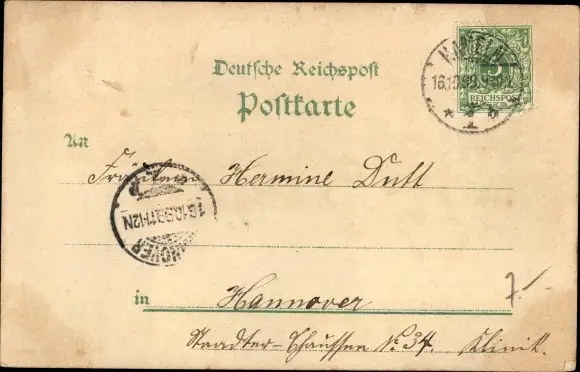 Deutsche Reichspost
Postkarte
HAMELN
16.10.99.
5
REICHSPOST
* 1 b
An
Fräulein Hermine Dutt
16.10.99.11-12N
HANNOVER
7.-
in Hannover
Chaussee No 34. Klinik.